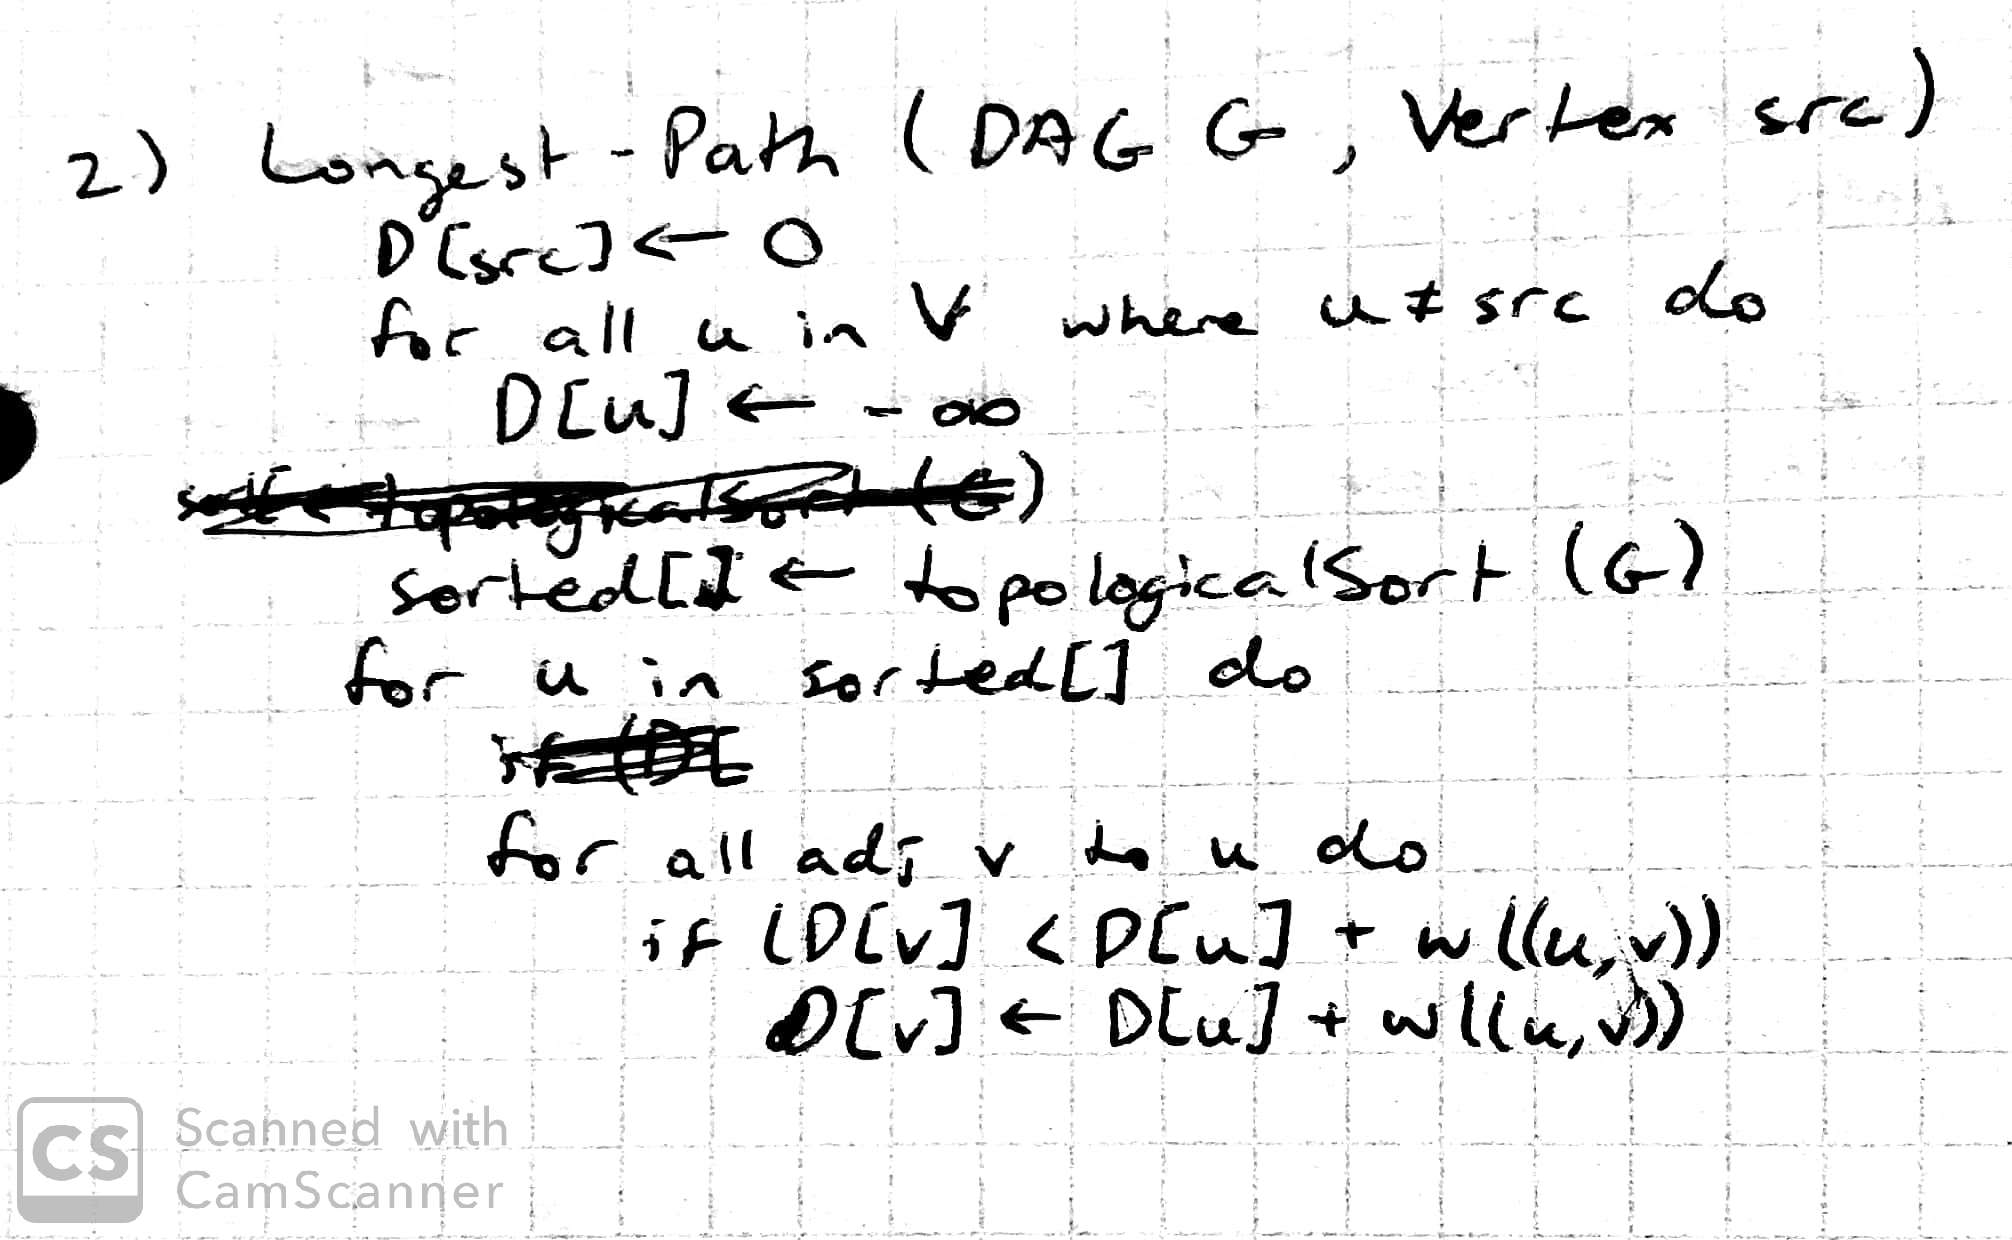 2) Longest-Path (DAG G, Vertex src)
D[src] ← 0
for all u in V where u ≠ src do
D[u] ← -∞
sorted[] ← topologicalSort (G)
for u in sorted[] do
for all adj v to u do
if (D[v] < D[u] + w((u,v))
D[v] ← D[u] + w((u,v))
CS Scanned with
CamScanner